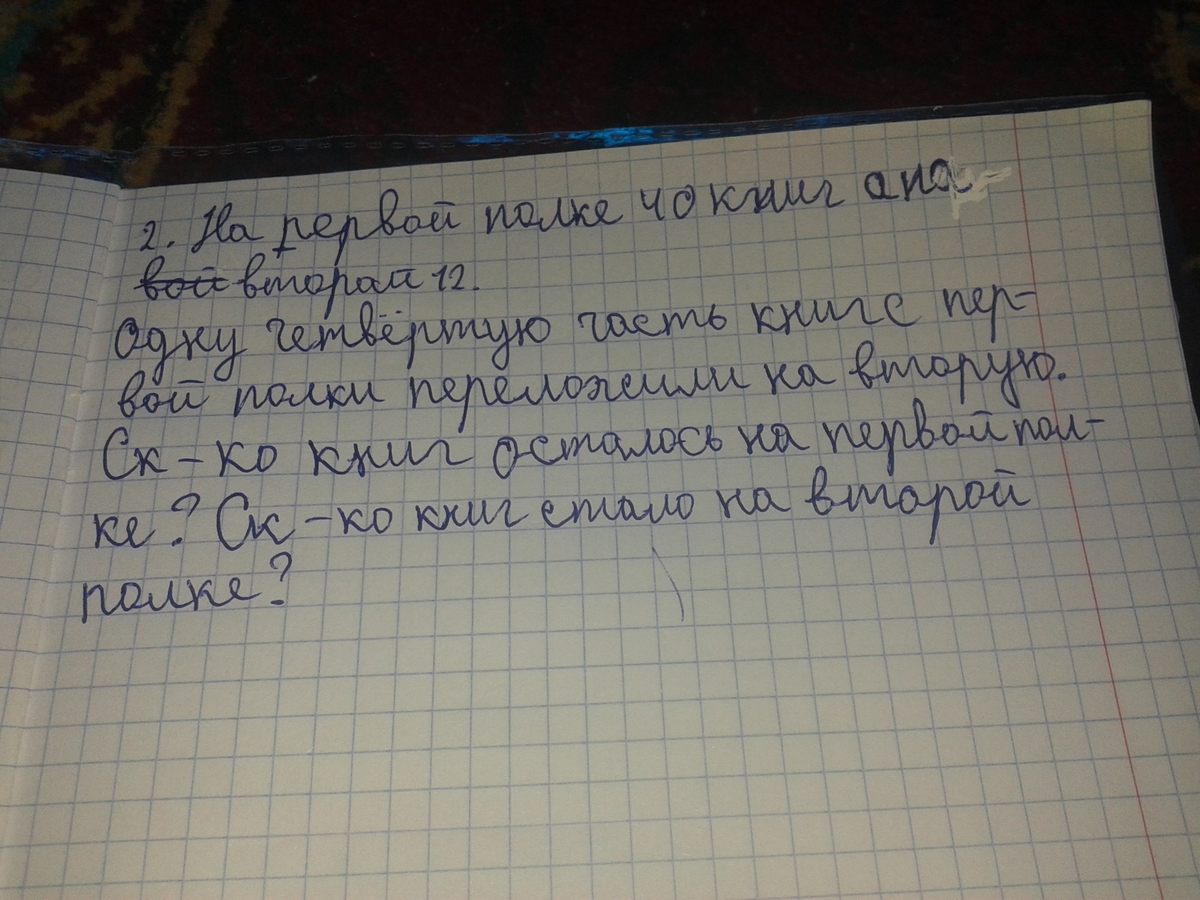 2. На первой полке 40 книг а на
вой второй 12.
Одну четвёртую часть книг с пер-
вой полки переложили на вторую.
Ск-ко книг осталось на первой пол-
ке? Ск-ко книг стало на второй
полке?